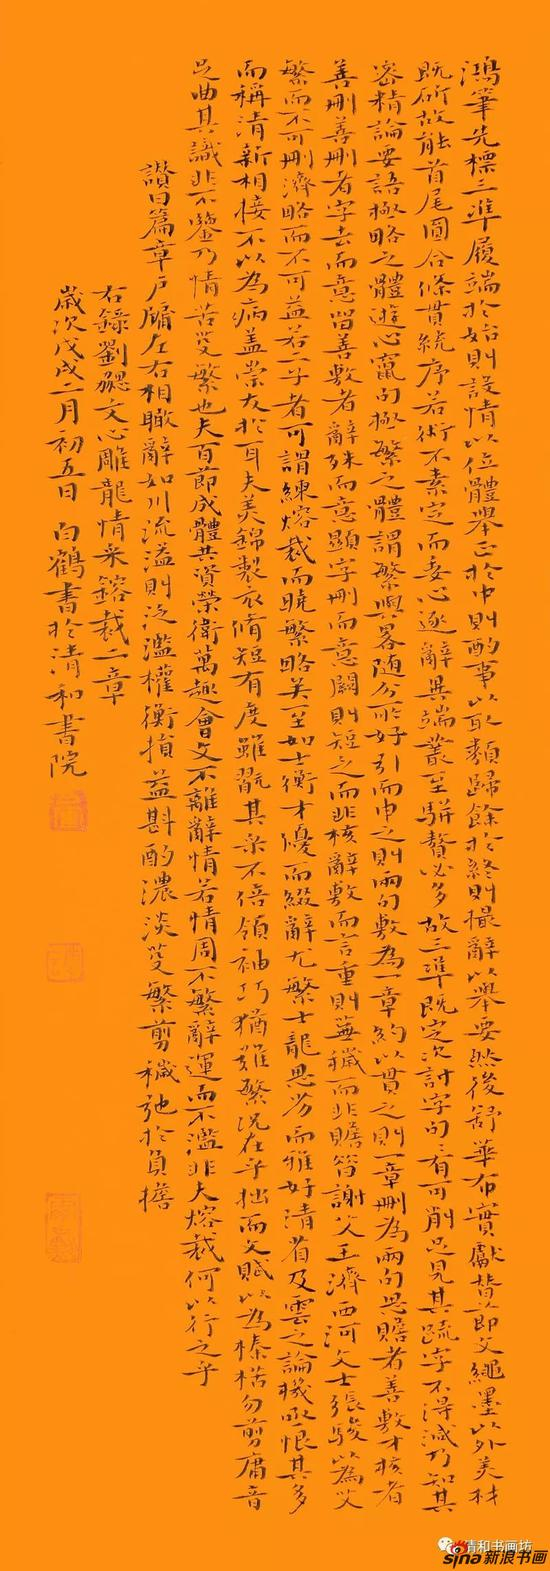 鴻筆先標三準履端於始則設情以位體舉正於中則酌事以取類歸餘於終則撮辭以舉要然後舒華布實獻替節文繩墨以外美材
既斫故能首尾圓合條貫統序若術不素定而委心逐辭異端叢至駢贅必多故三準既定次討字句々有可削足見其疏字不得減乃知其
密精論要語極略之體遊心竄句極繁之體謂繁與畧随分所好引而申之則兩句敷為一章約以貫之則一章刪為兩句思贍者善敷才核者
善刪善刪者字去而意留善敷者辭殊而意顯字刪而意闕則短乏而非核辭敷而言重則蕪穢而非贍昔謝艾王濟西河文士張駿以為艾
繁而不可刪濟略而不可益若二子者可謂練熔裁而曉繁略矣至如士衡才優而綴辭尤繁士龍思劣而雅好清省及雲之論機亟恨其多
而稱清新相接不以為病蓋崇友於耳夫美錦製衣脩短有度雖翫其采不倍領袖巧猶難繁況在乎拙而文賦以為榛楛勿剪庸音
足曲其識非不鑒乃情苦芟繁也夫百節成體共資榮衛萬趣會文不離辭情若情周不繁辭運而不濫非夫熔裁何以行之乎
讚曰篇章戶牖左右相瞰辭如川流溢則泛濫權衡損益斟酌濃淡芟繁剪穢弛於負擔
右錄劉勰文心雕龍情采鎔裁二章
歲次戊戌二月初五日 白鶴書於清和書院
清和书画坊
sina新浪书画